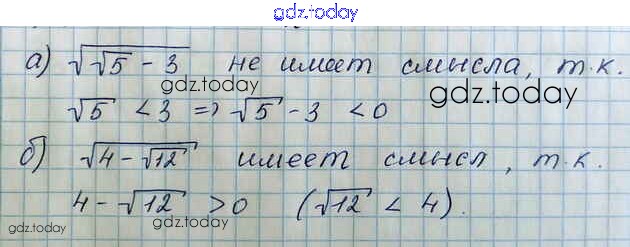 gdz.today
а) √(√5 - 3) не имеет смысла, т.к.
gdz.today
gdz.today
√5 < 3 => √5 - 3 < 0
б) √(4 - √12) имеет смысл, т.к.
4 - √12 > 0 (√12 < 4).
gdz.today
gdz.today